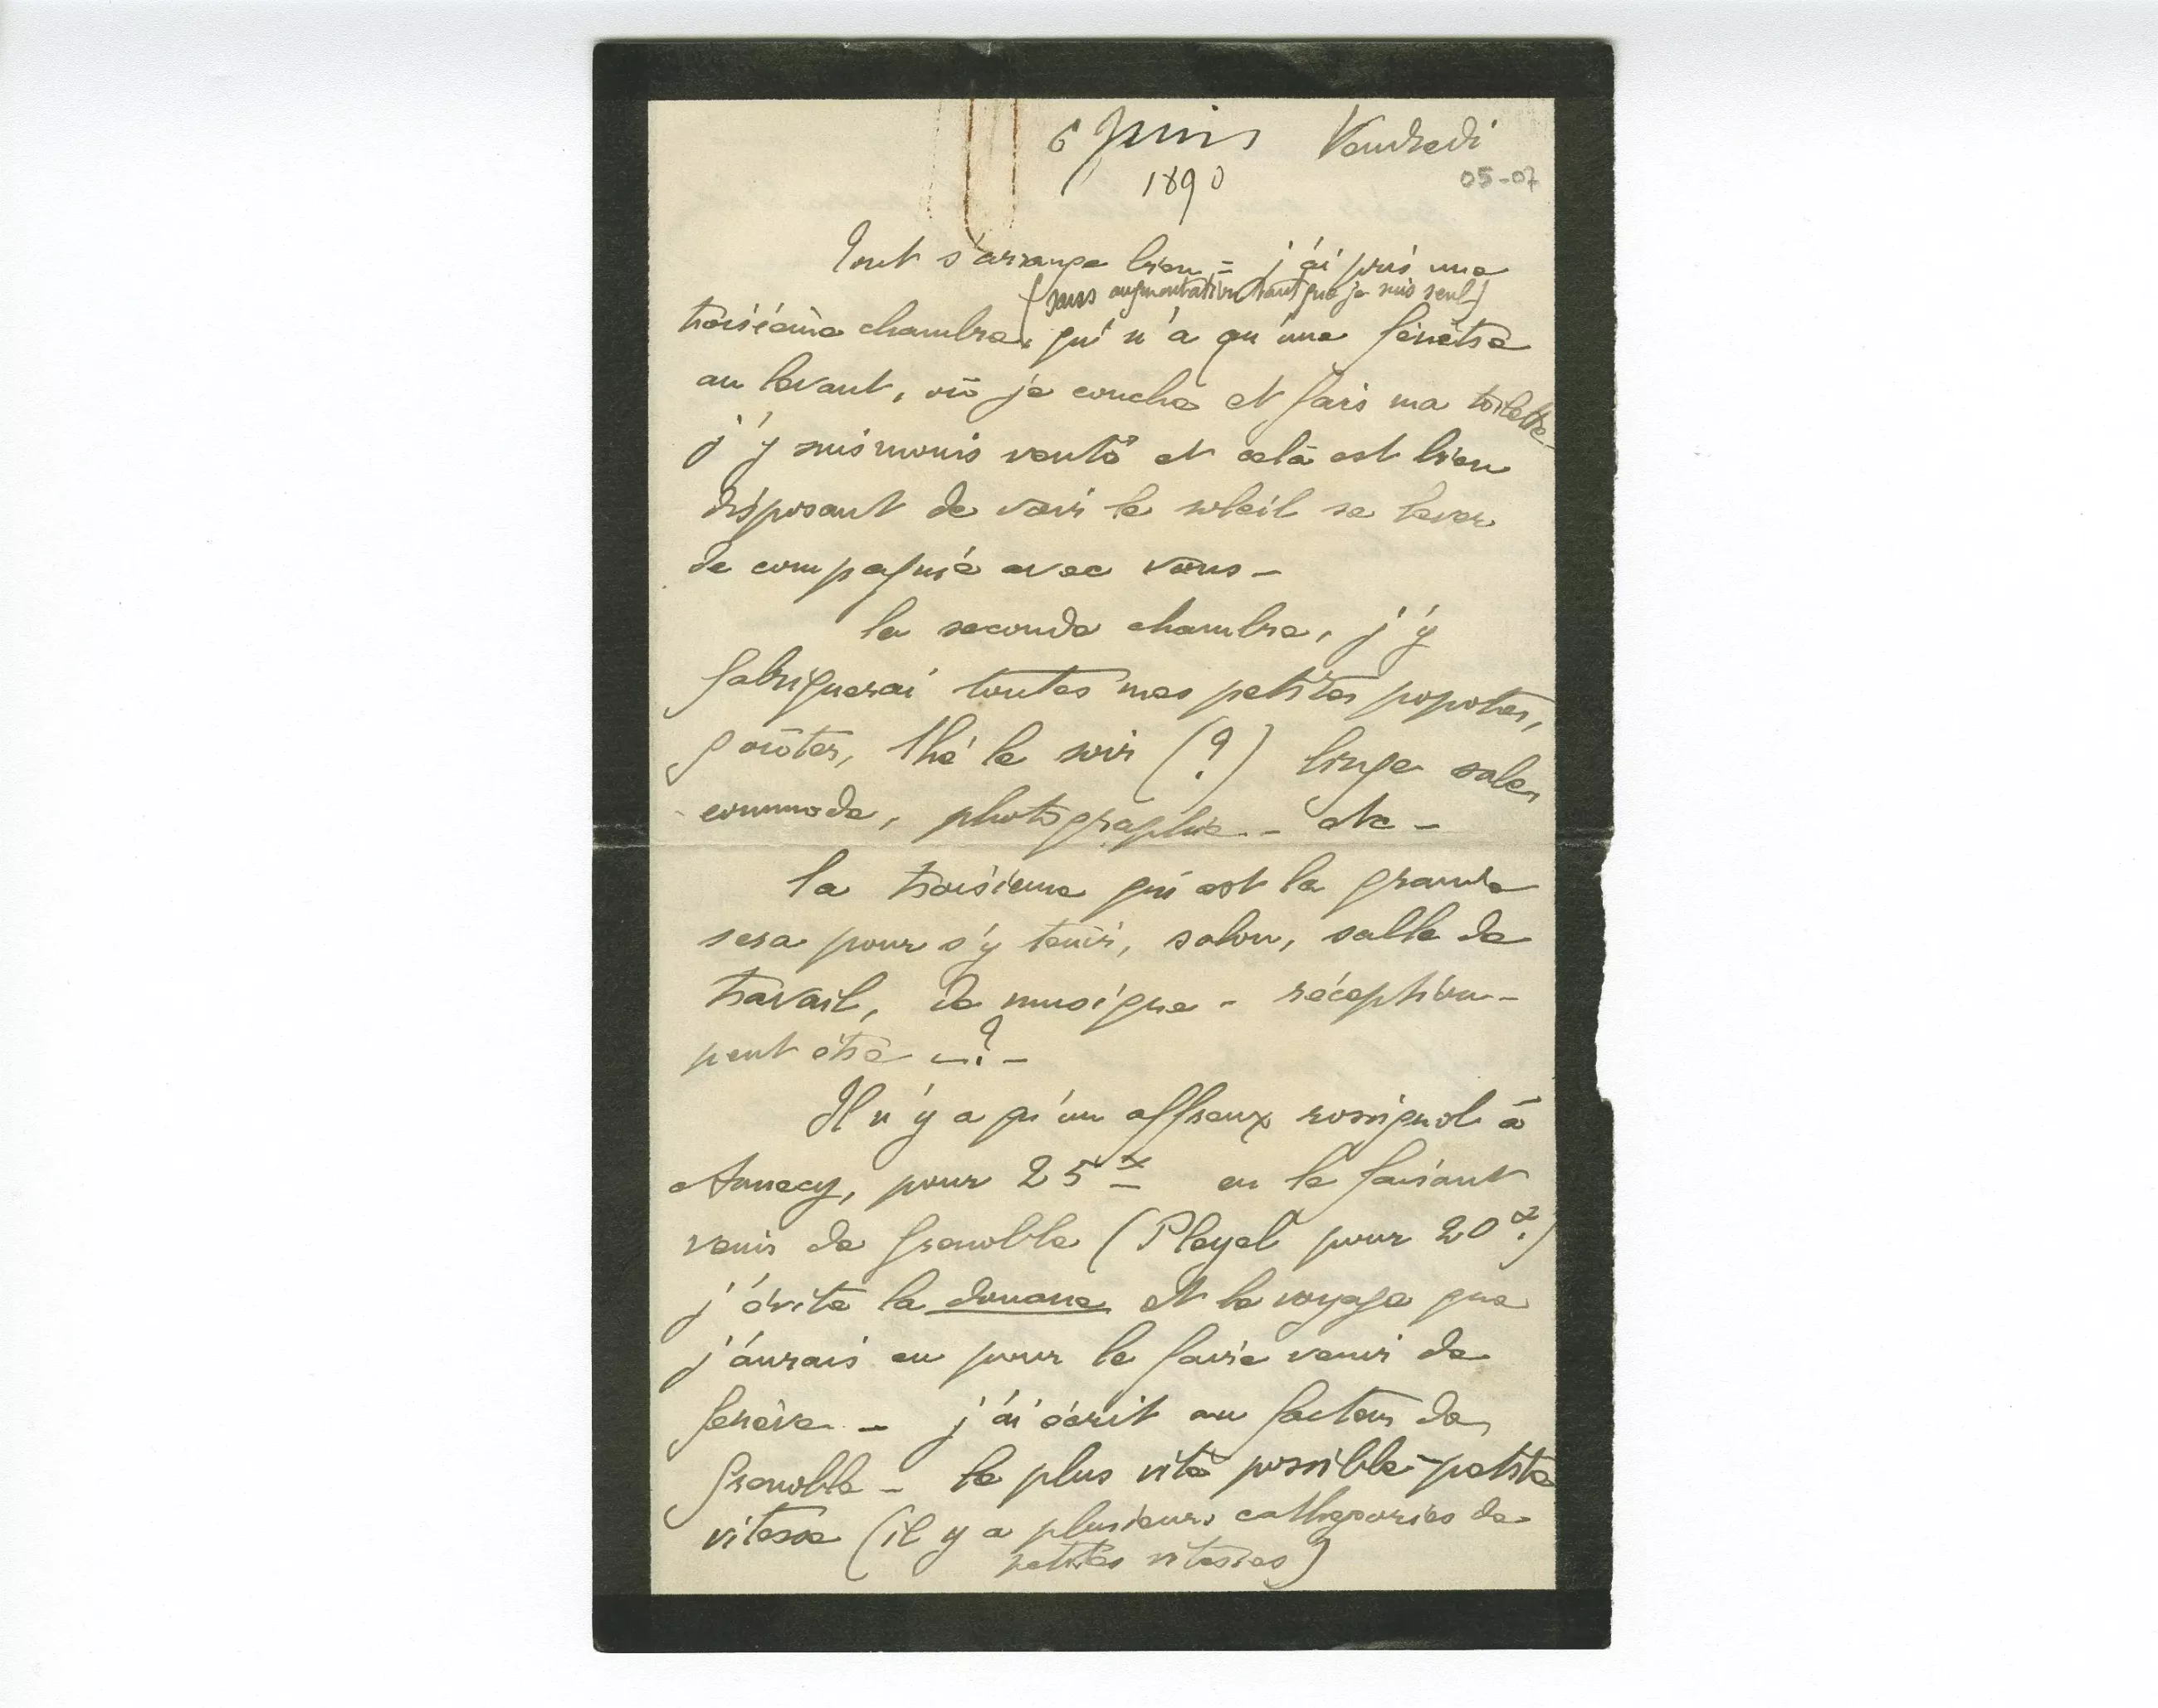 6 Juin Vendredi
1890
05-07
Tout s'arrange bien - j'ai pris une
(sans augmentation tant que je suis seul)
troisième chambre, qui n'a qu'une fenêtre
au levant, où je couche et fais ma toilette -
j'y suis moins venté et celà est bien
disposant de voir le soleil se lever
de compagnie avec vous -
la seconde chambre, j'y
fabriquerai toutes mes petites popotes,
goûter, thé le soir (?) linge sale,
commode, photographie - etc -
la troisième qui est la grande
sera pour s'y tenir, salon, salle de
travail, de musique - réception -
peut être - ? -
Il n'y a qu'un affreux rossignol à
Annecy, pour 25 en le faisant
venir de Grenoble (Pleyel pour 20 !)
j'évite la douane et le voyage que
j'aurais eu pour le faire venir de
Genève - j'ai écrit au facteur de
Grenoble - le plus vite possible - petite
vitesse (il y a plusieurs cathégories de
petites vitesses)